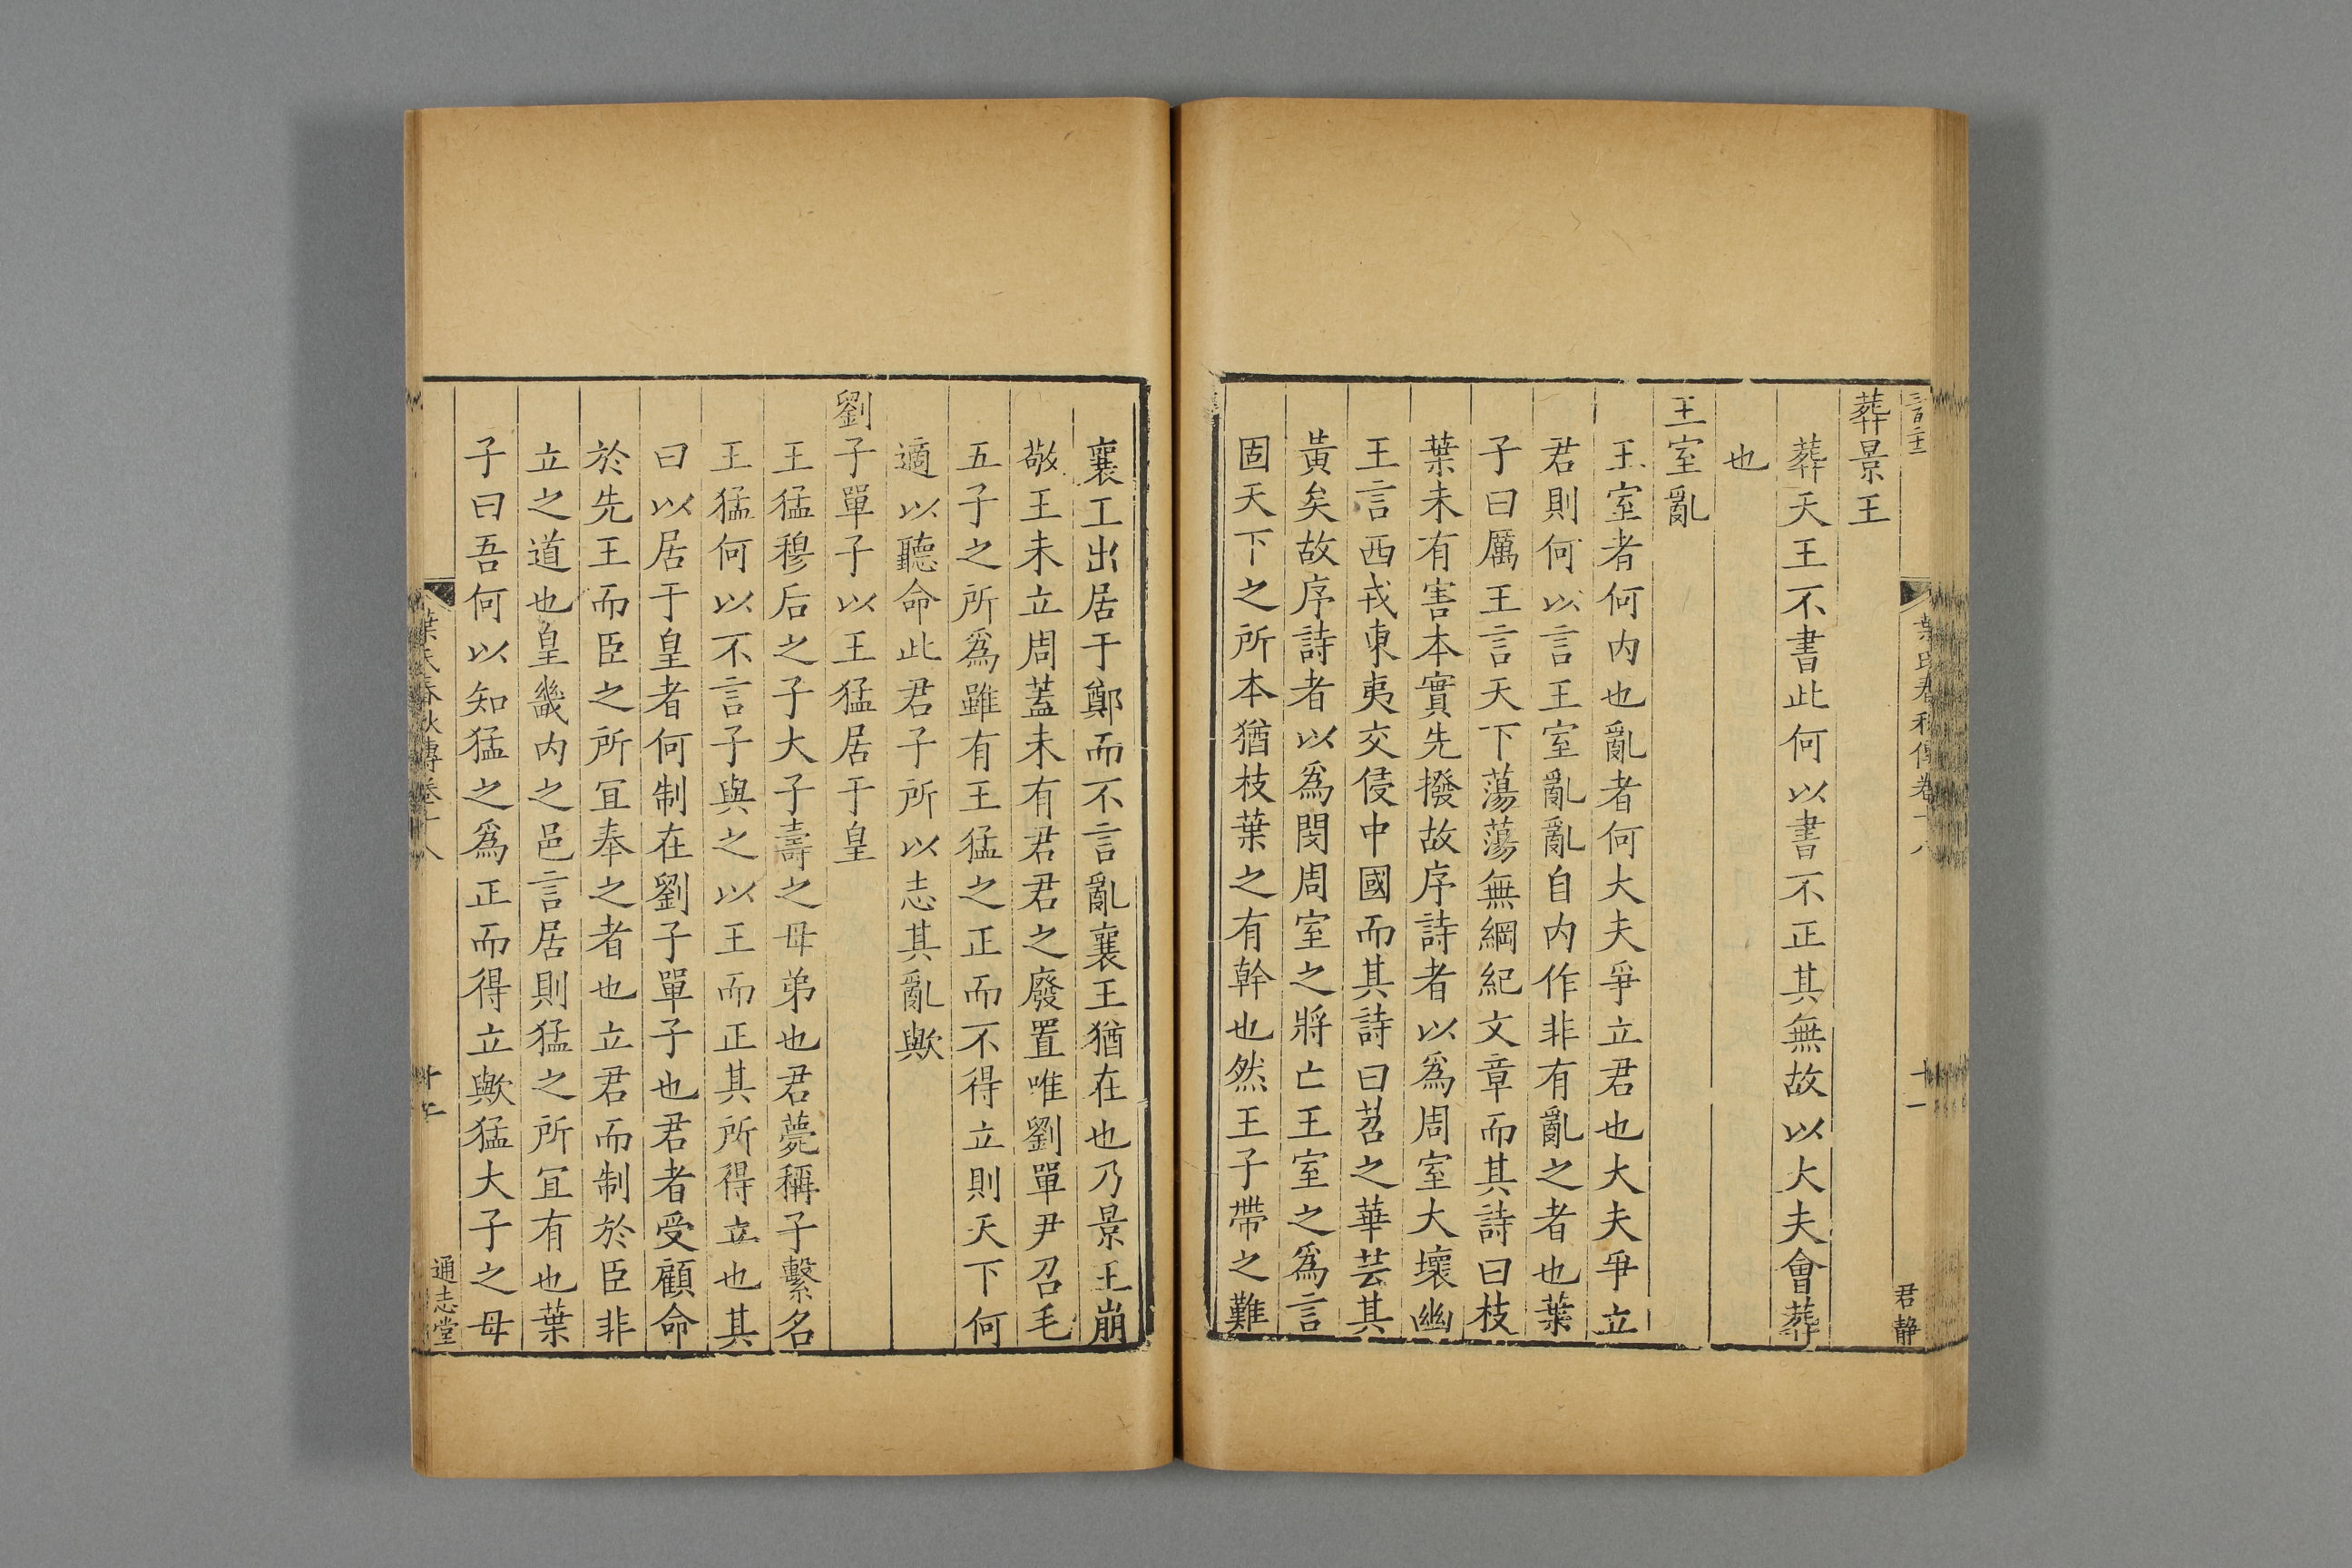 葬景王
葬天王不書此何以書不正其無故以大夫會葬
也
王室亂
王室者何内也亂者何大夫爭立君也大夫爭立
君則何以言王室亂亂自内作非有亂之者也葉
子曰厲王言天下蕩蕩無綱紀文章而其詩曰枝
葉未有害本實先撥故序詩者以爲周室大壞幽
王言西戎東夷交侵中國而其詩曰苕之華芸其
黄矣故序詩者以爲閔周室之將亡王室之爲言
固天下之所本猶枝葉之有幹也然王子帶之難
君静
襄王出居于鄭而不言亂襄王猶在也乃景王崩
敬王未立周蓋未有君君之廢置唯劉單尹召毛
五子之所爲雖有王猛之正而不得立則天下何
適以聽命此君子所以志其亂歟
劉子單子以王猛居于皇
王猛穆后之子大子壽之母弟也君薨稱子繫名
王猛何以不言子與之以王而正其所得立也其
曰以居于皇者何制在劉子單子也君者受顧命
於先王而臣之所宜奉之者也立君而制於臣非
立之道也皇畿内之邑言居則猛之所宜有也葉
子曰吾何以知猛之爲正而得立歟猛大子之母
葉氏春秋傳卷十八
通志堂